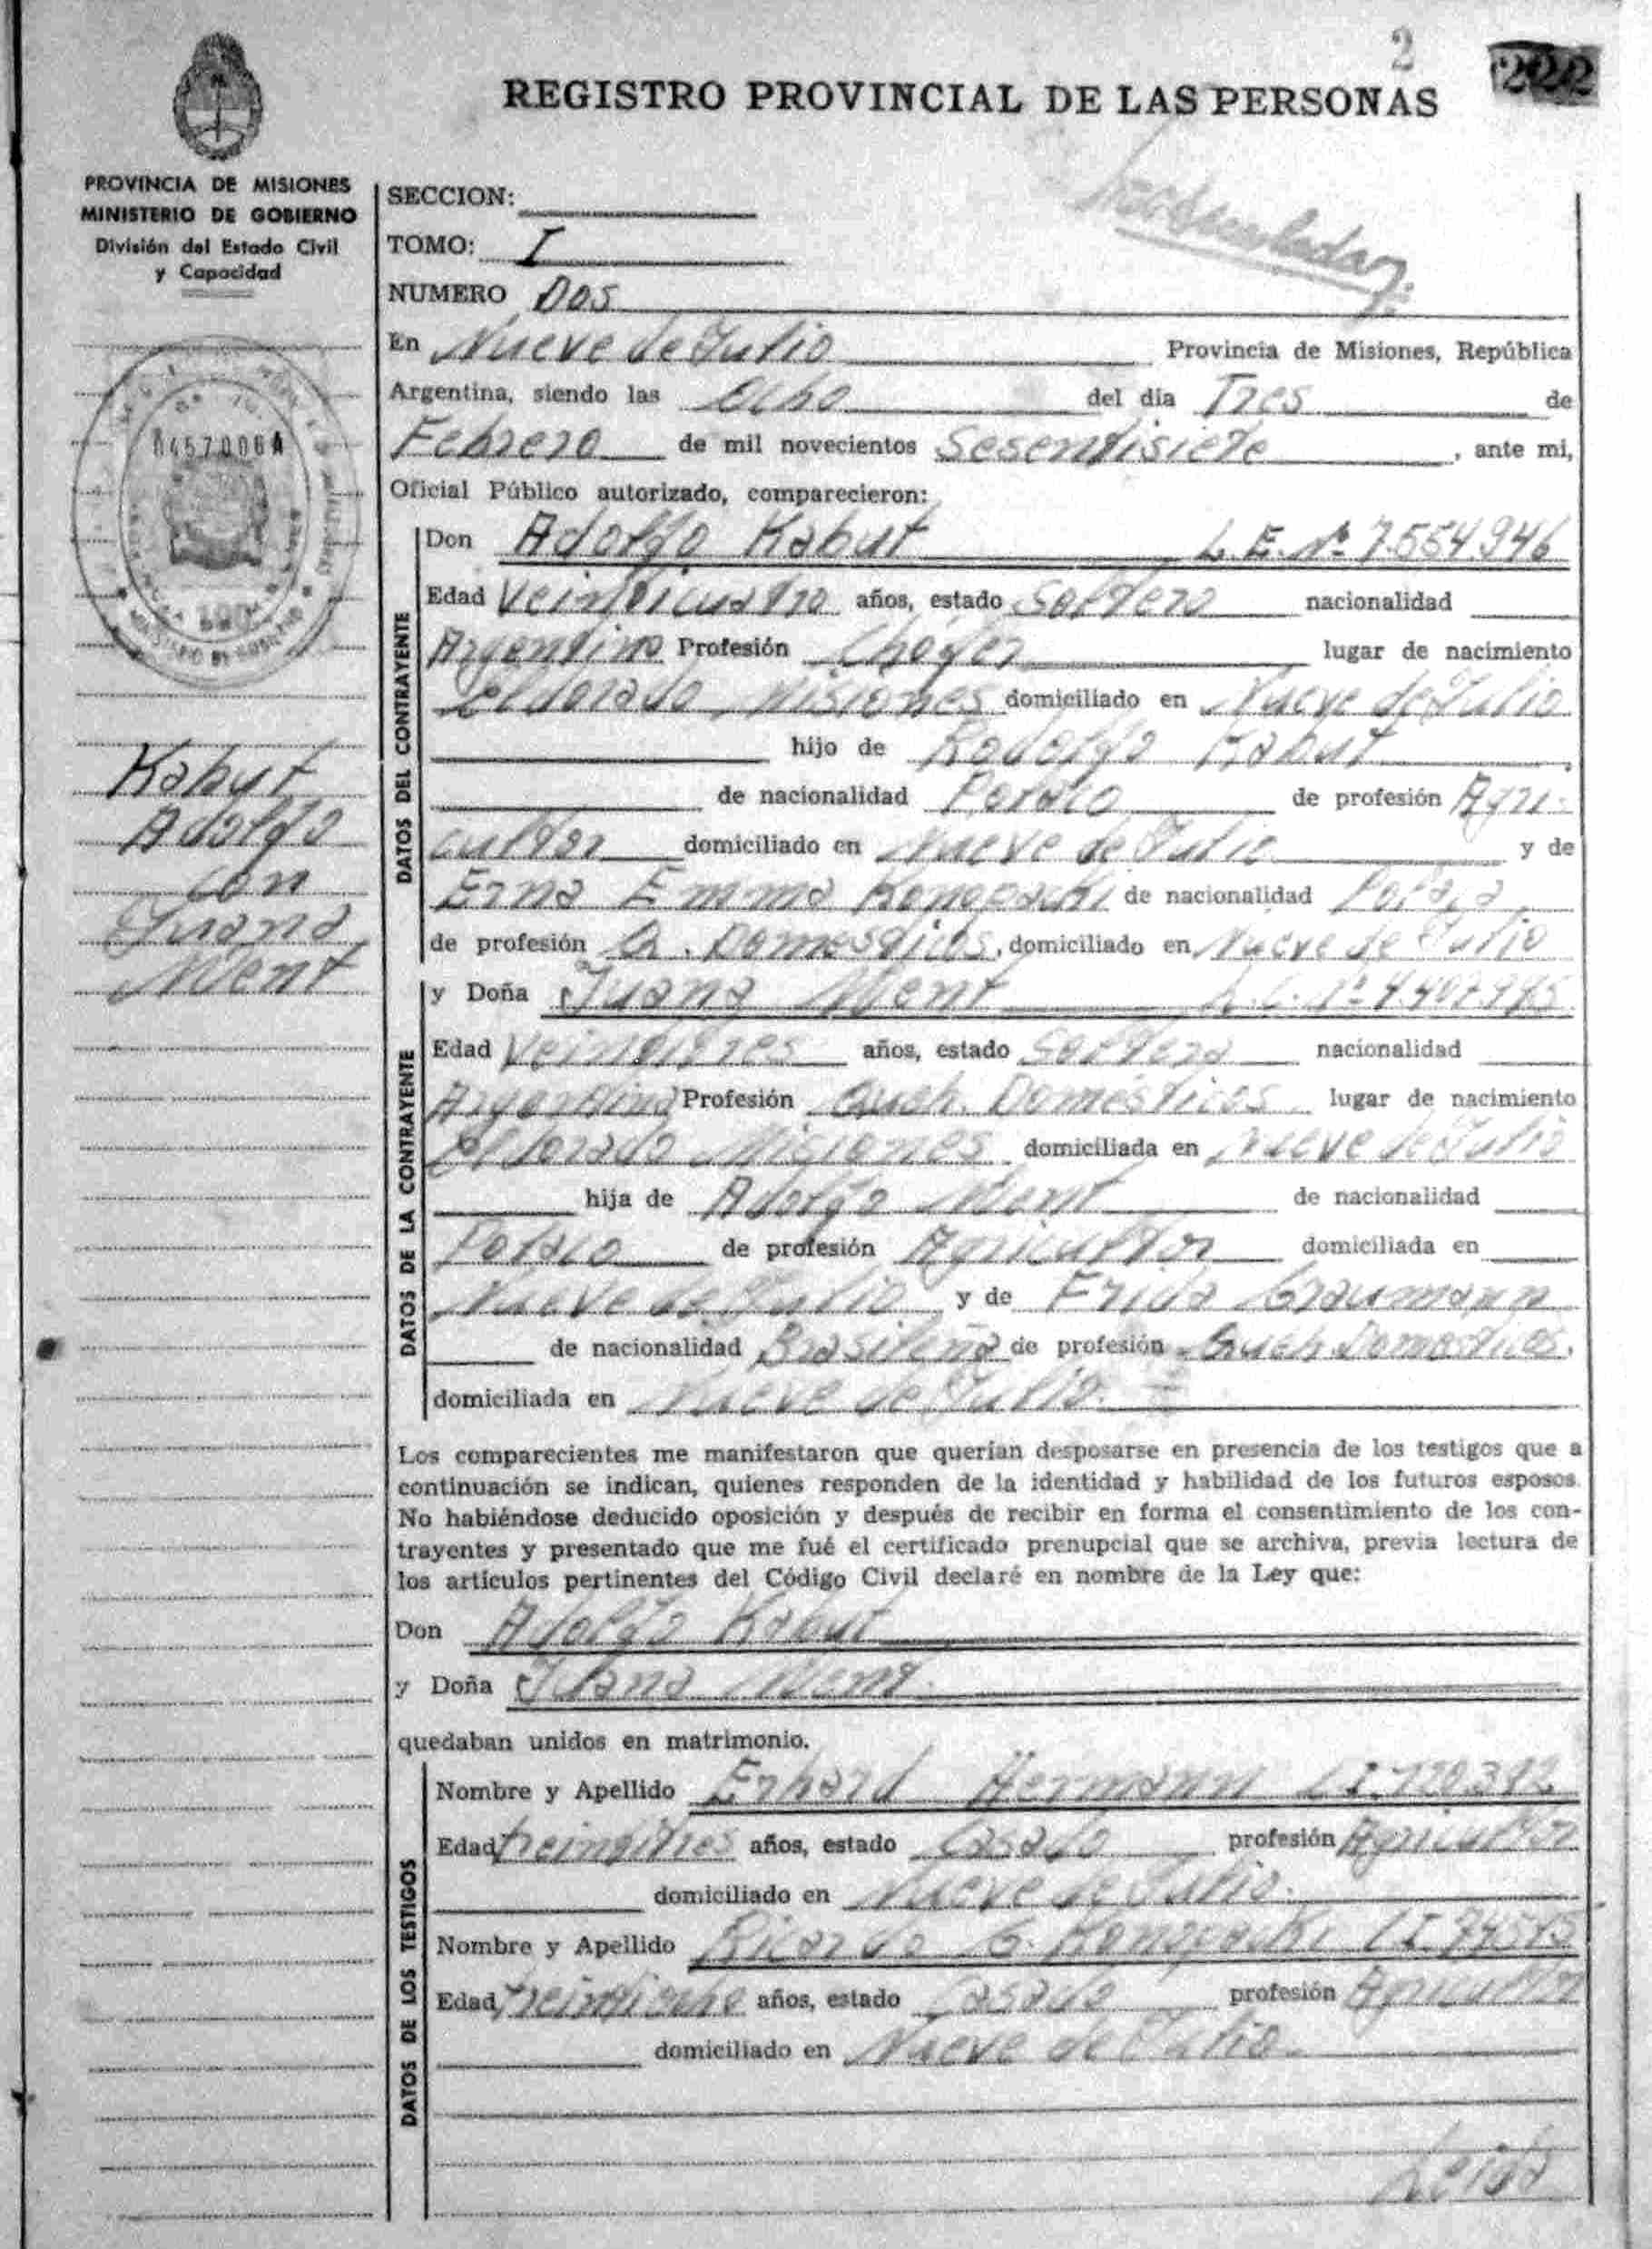 2
222
REGISTRO PROVINCIAL DE LAS PERSONAS
PROVINCIA DE MISIONES
MINISTERIO DE GOBIERNO
División del Estado Civil
y Capacidad
SECCION:
TOMO: I
NUMERO Dos
En Nueve de Julio Provincia de Misiones, República
Argentina, siendo las Ocho del dia Tres de
Febrero de mil novecientos Sesentisiete, ante mi,
Oficial Público autorizado, comparecieron:
DATOS DEL CONTRAYENTE
Don Adolfo Kabut L. E. Nº 7.554.946
Edad Veinticuatro años, estado Soltero nacionalidad
Argentino Profesión Chofer lugar de nacimiento
Eldorado, Misiones domiciliado en Nueve de Julio
hijo de Rodolfo Kabut,
de nacionalidad Polaco de profesión Agri-
cultor domiciliado en Nueve de Julio y de
Erna Emma Konopacki de nacionalidad Polaca
de profesión Q. Domesticos, domiciliado en Nueve de Julio
Kabut
Adolfo
con
Juana
Went
DATOS DE LA CONTRAYENTE
y Doña Juana Went L.C. Nº
Edad Veintitres años, estado Soltera nacionalidad
Argentina Profesión Queh. Domésticos lugar de nacimiento
Eldorado Misiones domiciliada en Nueve de Julio
hija de Adolfo Went de nacionalidad
Polaco de profesión Agricultor domiciliada en
Nueve de Julio y de Frida Graumann
de nacionalidad Brasileña de profesión Queh. Domesticos,
domiciliada en Nueve de Julio.
Los comparecientes me manifestaron que querían desposarse en presencia de los testigos que a
continuación se indican, quienes responden de la identidad y habilidad de los futuros esposos.
No habiéndose deducido oposición y después de recibir en forma el consentimiento de los con-
trayentes y presentado que me fué el certificado prenupcial que se archiva, previa lectura de
los artículos pertinentes del Código Civil declaré en nombre de la Ley que:
Don Adolfo Kabut
y Doña Juana Went.
quedaban unidos en matrimonio.
DATOS DE LOS TESTIGOS
Nombre y Apellido Erhard Hermann C.I.
Edad treintitres años, estado Casado profesión Agricultor
domiciliado en Nueve de Julio.
Nombre y Apellido Ricardo G. Konopacki C.I.
Edad treintiocho años, estado Casado profesión Agricultor
domiciliado en Nueve de Julio.
Leida